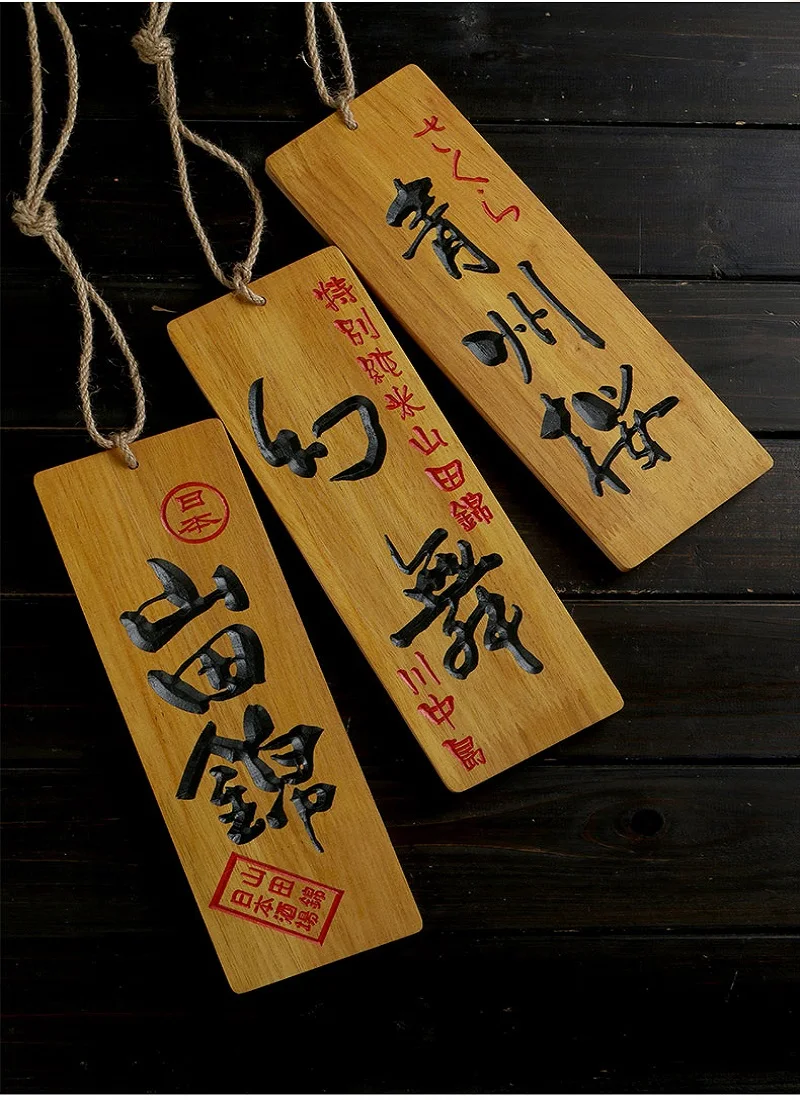 日本
山田錦
山田錦
日本酒場
特別純米山田錦
幻舞
川中島
さくら
青州桜